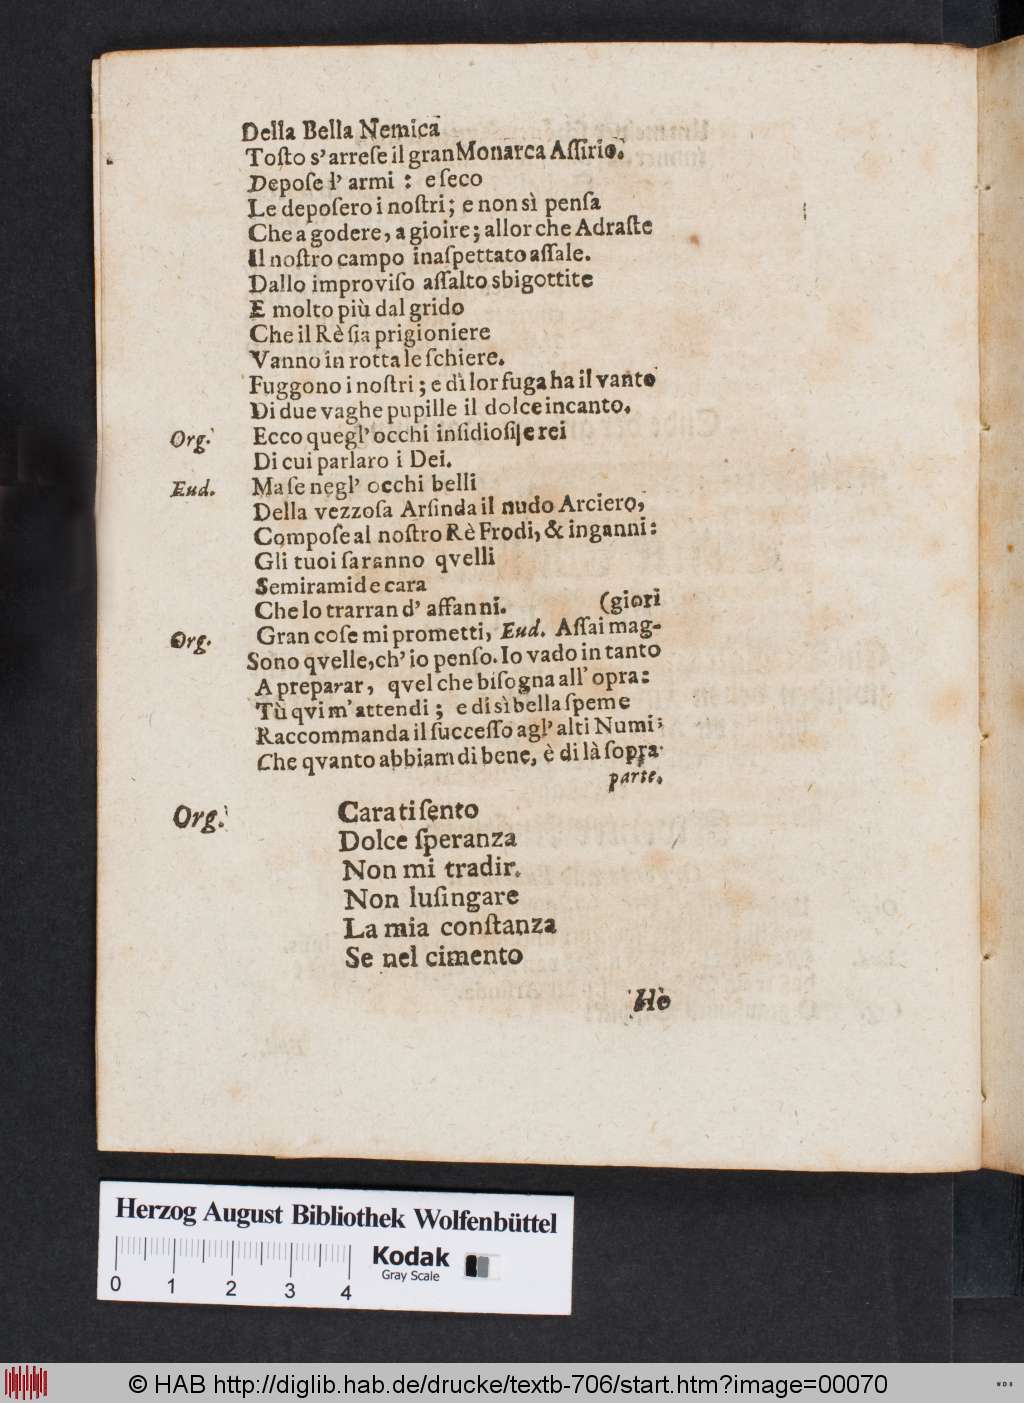 Della Bella Nemica
Toſto s'arreſe il gran Monarca Aſſirio.
Depoſe l' armi : e ſeco
Le depoſero i noſtri ; e non sì penſa
Che a godere, a gioire ; allor che Adraſte
Il noſtro campo inaſpettato aſſale.
Dallo improviſo aſſalto sbigottite
E molto più dal grido
Che il Rè ſia prigioniere
Vanno in rotta le ſchiere.
Fuggono i noſtri ; e dì lor fuga ha il vanto
Di due vaghe pupille il dolce incanto.
Org. Ecco quegl' occhi inſidioſi, e rei
Di cui parlaro i Dei.
Eud. Ma ſe negl' occhi belli
Della vezzoſa Arſinda il nudo Arciero,
Compoſe al noſtro Rè Frodi, & inganni :
Gli tuoi ſaranno qvelli
Semiramide cara
Che lo trarran d' affanni. (giori
Org. Gran coſe mi prometti, Eud. Aſſai mag-
Sono qvelle, ch' io penſo. Io vado in tanto
A preparar, qvel che biſogna all' opra :
Tù qvi m' attendi ; e di sì bella ſpeme
Raccommanda il ſucceſſo agl' alti Numi ;
Che qvanto abbiam di bene, è di là ſopra.
parte.
Org. Cara ti ſento
Dolce ſperanza
Non mi tradir.
Non luſingare
La mia conſtanza
Se nel cimento
Hò
Herzog August Bibliothek Wolfenbüttel
Kodak
Gray Scale
0 1 2 3 4
© HAB http://diglib.hab.de/drucke/textb-706/start.htm?image=00070